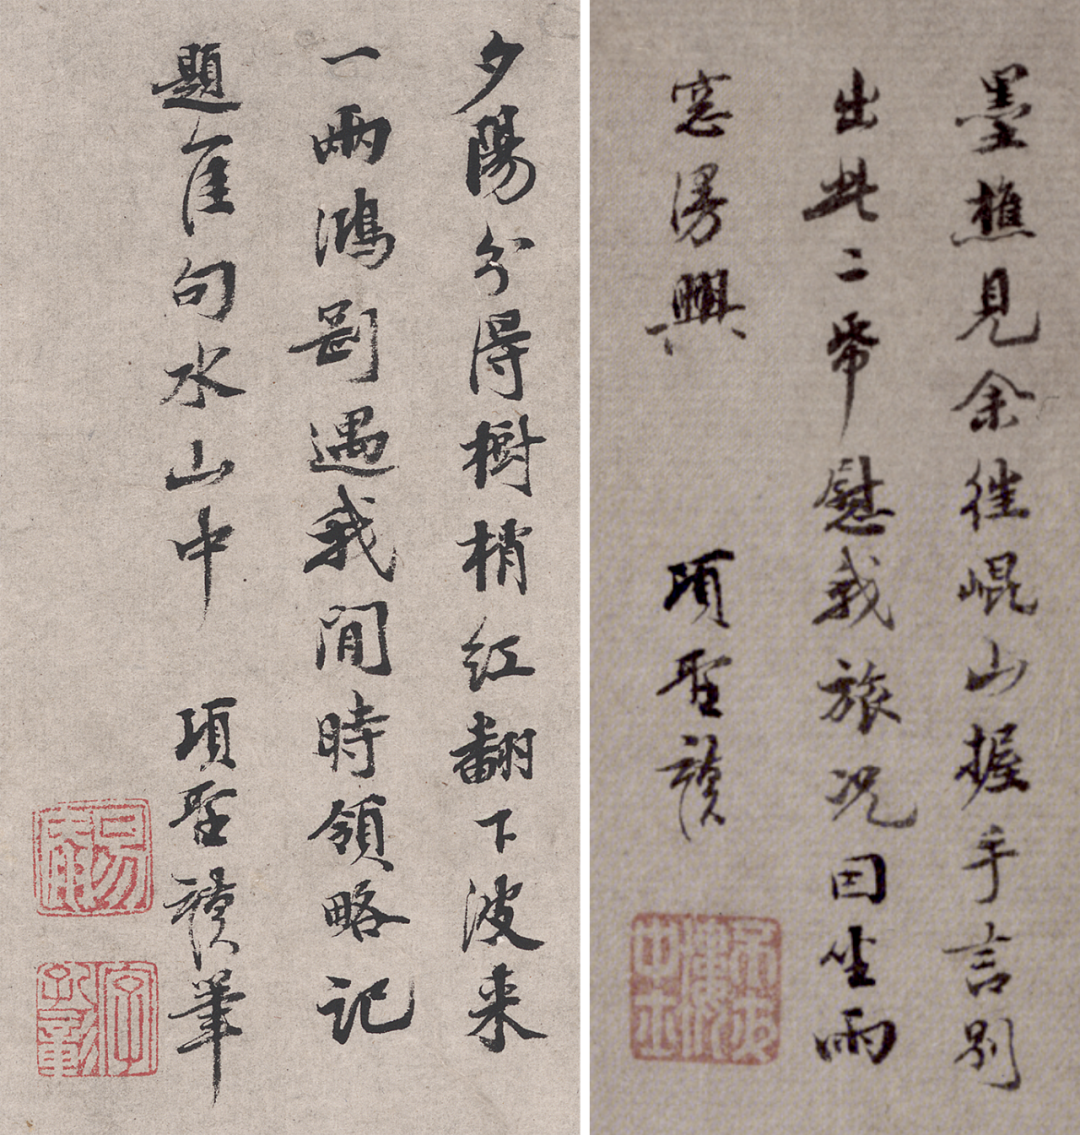 夕陽分得樹梢紅翻下波来
一兩鴻剛遇我閒時領略記
題佳句水山中
項聖謨筆
墨樵見余徃崐山握手言別
出此二帋慰我旅况因坐雨
窓漫興
項聖謨